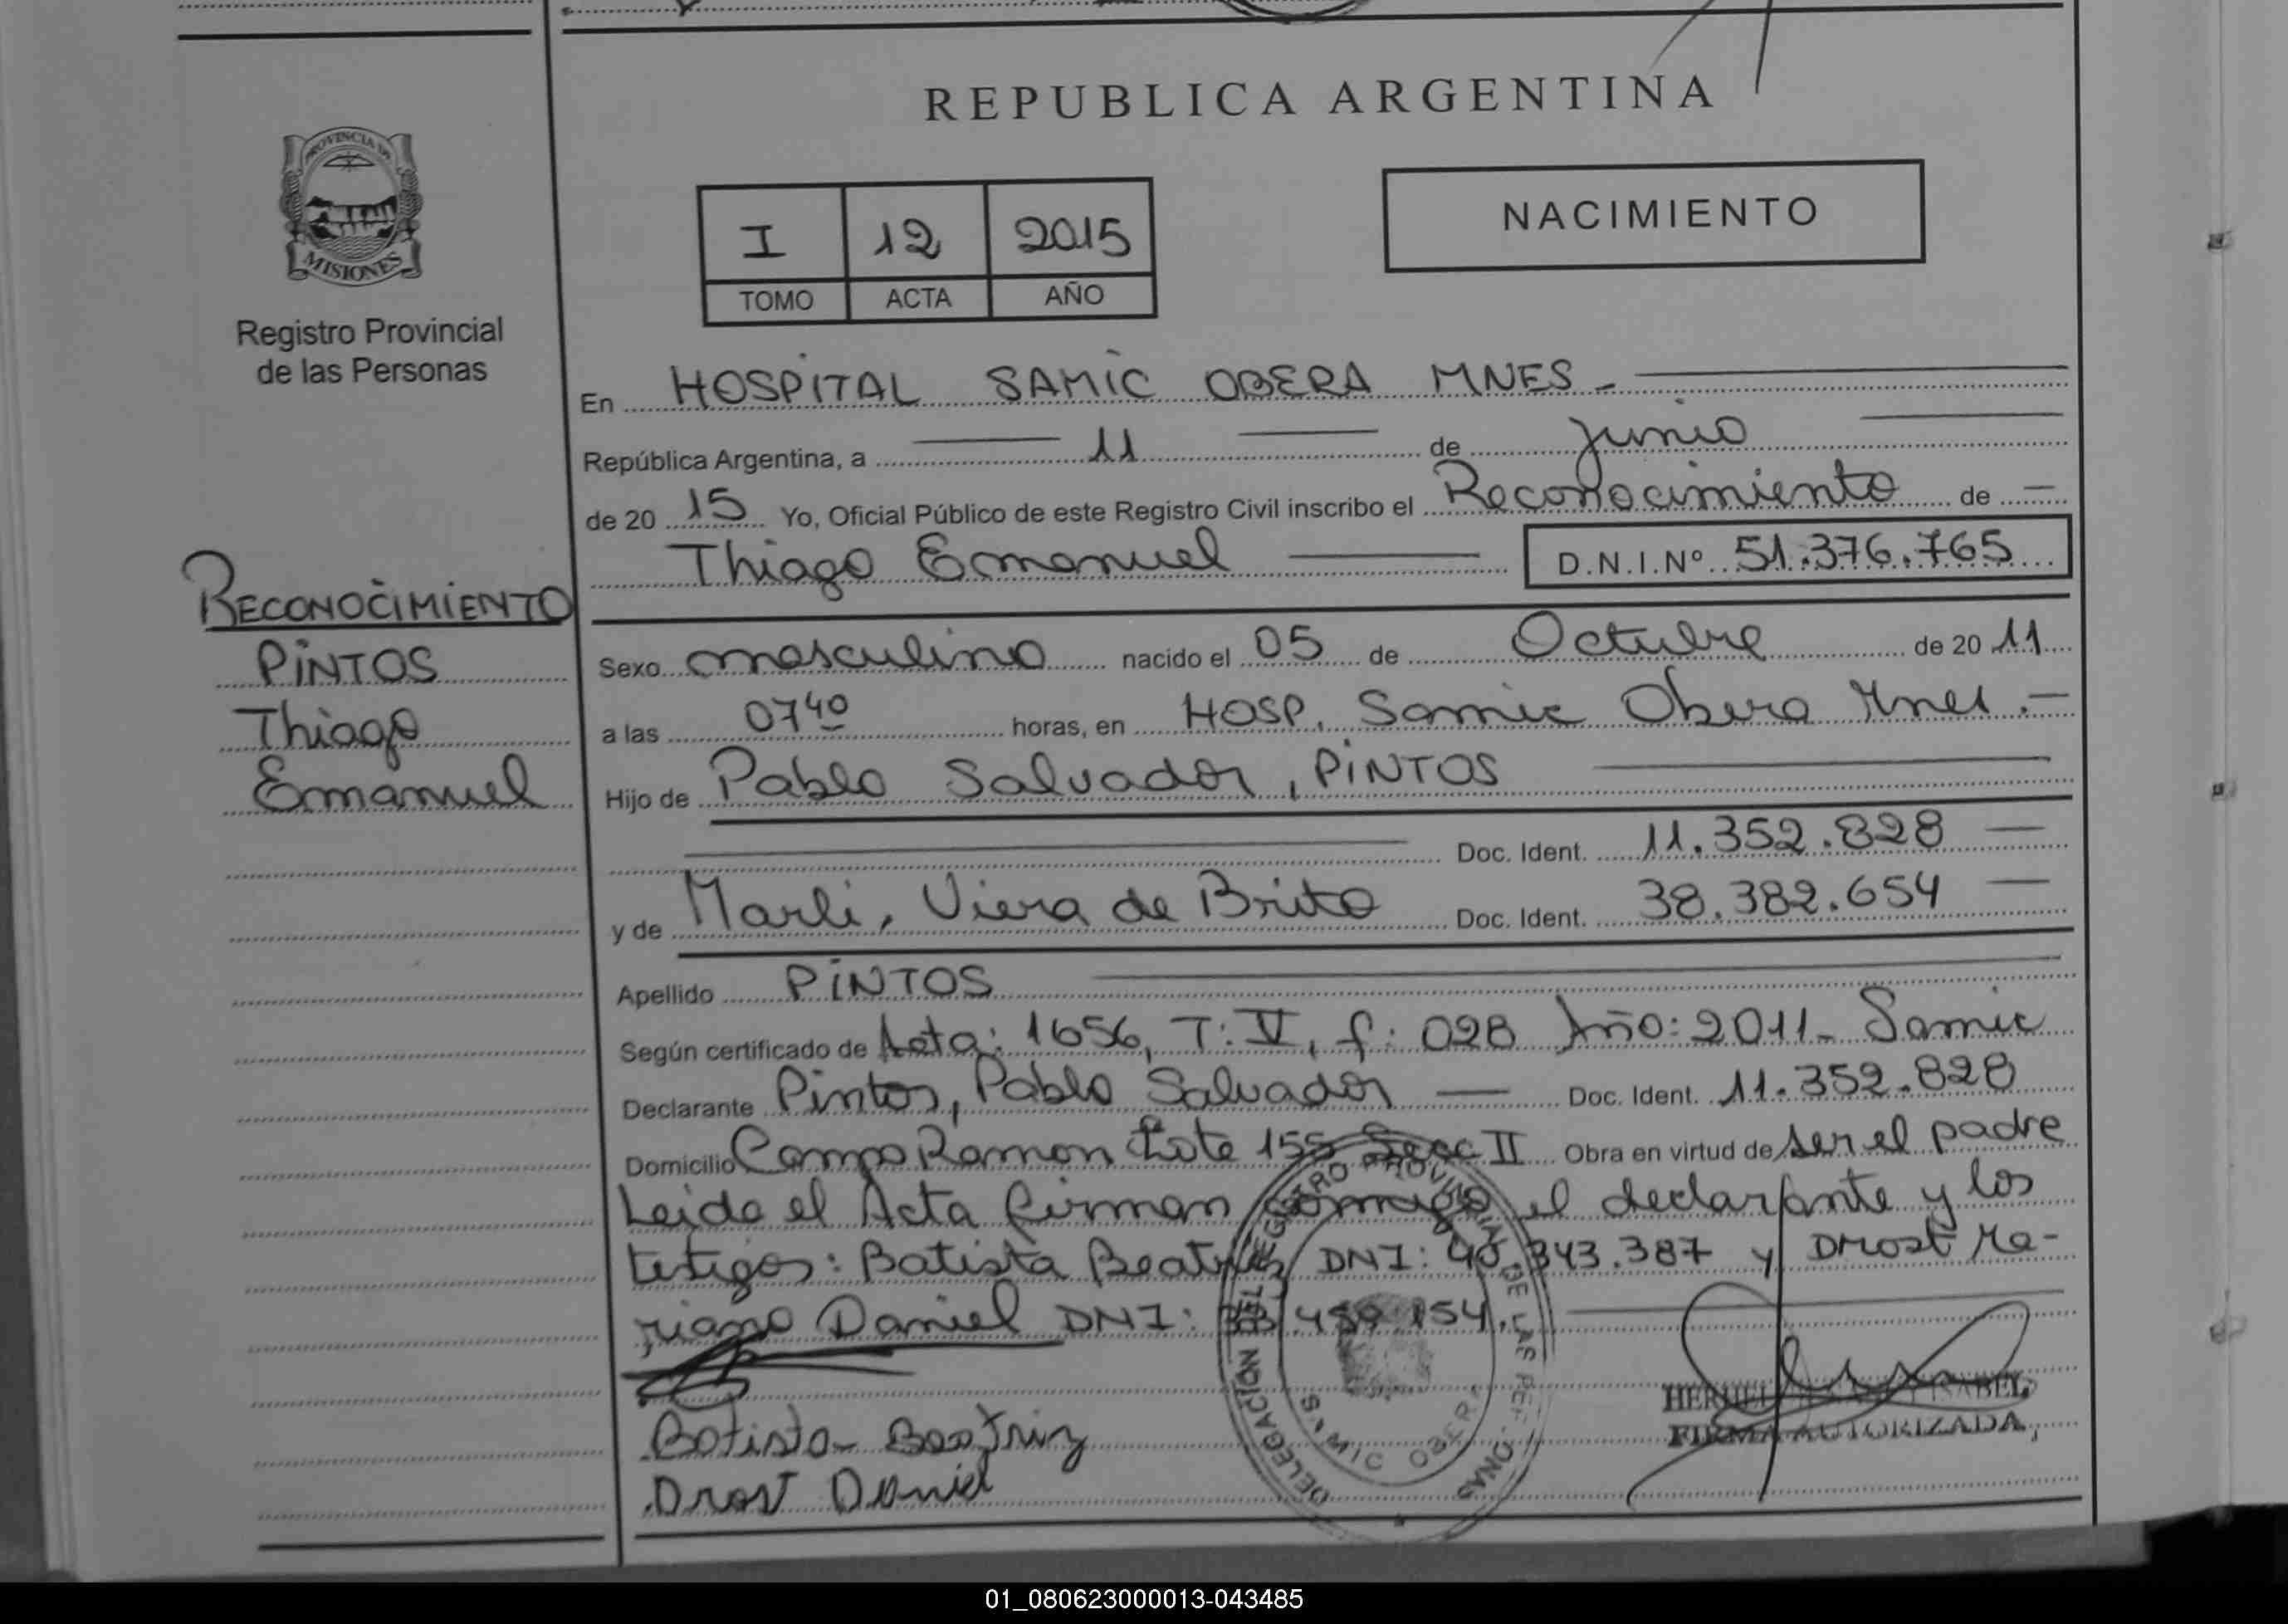 REPUBLICA ARGENTINA
PROVINCIA DE
MISIONES
Registro Provincial
de las Personas
I 12 2015
TOMO ACTA AÑO
NACIMIENTO
En HOSPITAL SAMIC OBERA MNES -
República Argentina, a 11 de Junio
de 20 15 Yo, Oficial Público de este Registro Civil inscribo el Reconocimiento de
Thiago Emanuel D.N.I.Nº 51.376.765
RECONOCIMIENTO
PINTOS
Thiago
Emanuel
Sexo masculino nacido el 05 de Octubre de 20 11
a las 07 40 horas, en HOSP. Samic Obera Mnes .-
Hijo de Pablo Salvador, PINTOS
Doc. Ident. 11.352.828
y de Marli, Viera de Brito Doc. Ident. 38.382.654
Apellido PINTOS
Según certificado de Acta: 1656, T: V, f: 028 Año: 2011- Samic
Declarante Pintos, Pablo Salvador Doc. Ident. 11.352.828
Domicilio Campo Ramon Lote 155 Secc II Obra en virtud de ser el padre
Leida el Acta firman conmigo el declarante y los
testigos: Batista Beatriz DNI: 40.343.387 y Drost Ma-
riano Daniel DNI: 459.154.
Batista Beatriz
Drost Daniel
DELEGACION DEL REGISTRO PROVINCIAL DE LAS PERSONAS
SAMIC OBERA
ISABEL
FIRMA AUTORIZADA
01_080623000013-043485